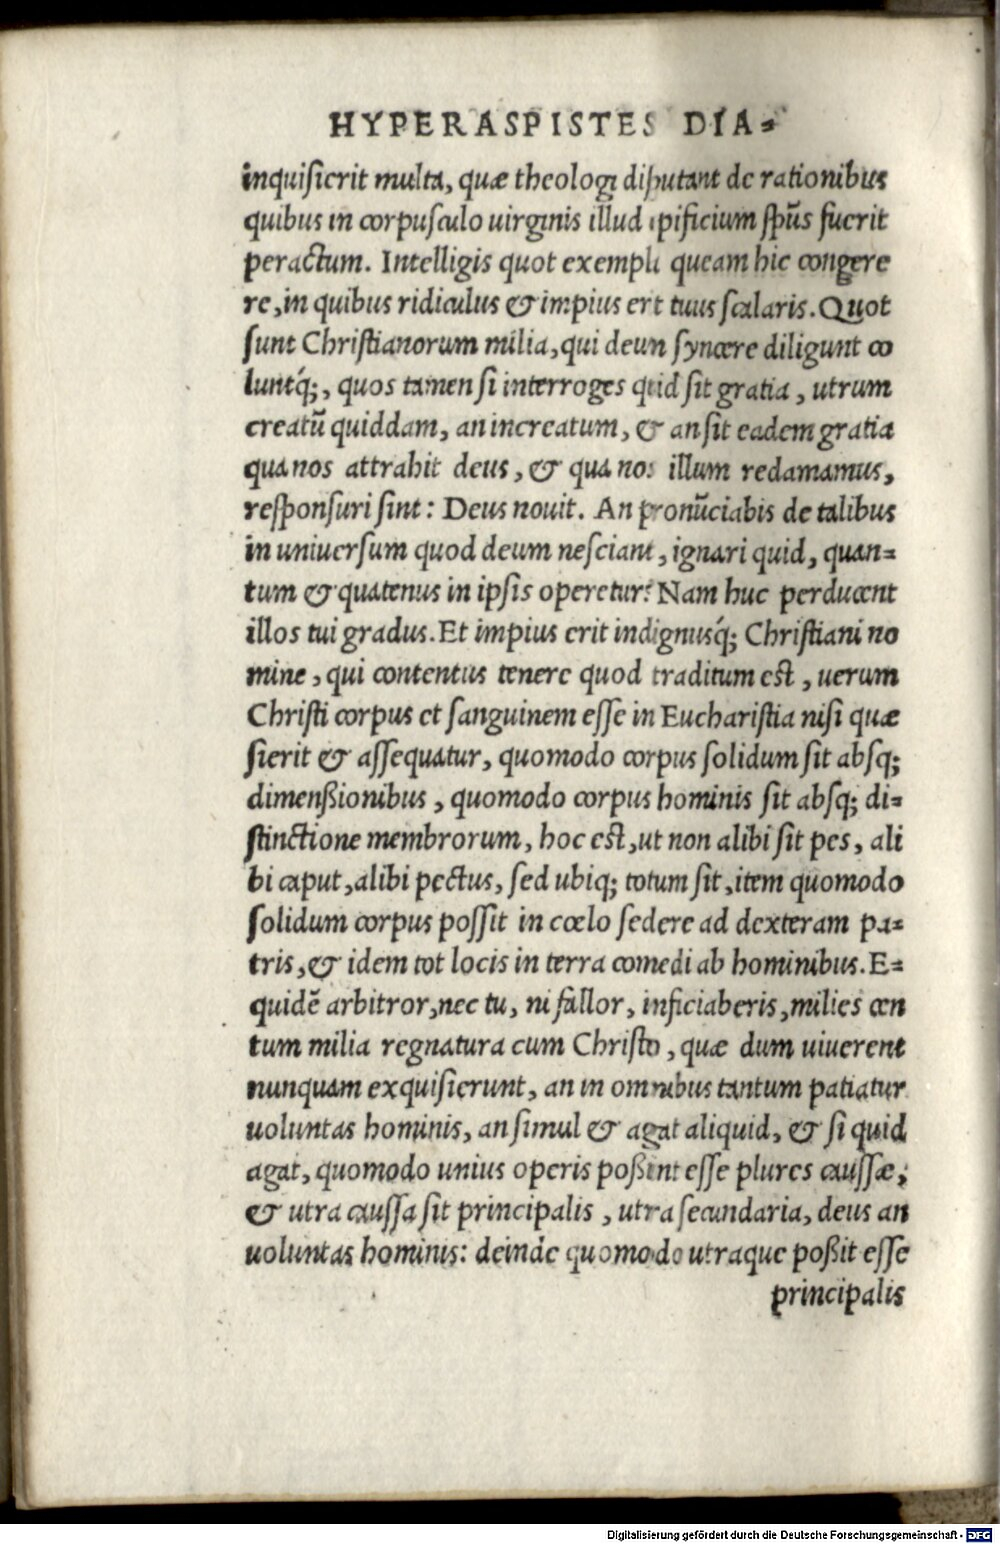 HYPERASPISTES DIA⸗
inquiſierit multa, quæ theologi diſputant de rationibus
quibus in corpuſculo uirginis illud opificium ſpūs fuerit
peractum. Intelligis quot exempla queam hic congere
re, in quibus ridiculus & impius erit tuus ſcalaris. Quot
ſunt Christianorum milia, qui deum ſyncere diligunt co
luntq́;, quos tamen ſi interroges quid ſit gratia, utrum
creatū quiddam, an increatum, & an ſit eadem gratia
qua nos attrahit deus, & qua nos illum redamamus,
reſponſuri ſint: Deus nouit. An pronūciabis de talibus
in uniuerſum quod deum neſciant, ignari quid, quan⸗
tum & quatenus in ipſis operetur? Nam huc perducent
illos tui gradus. Et impius erit indignusq́; Christiani no
mine, qui contentus tenere quod traditum est, uerum
Christi corpus et ſanguinem eſſe in Eucharistia niſi quæ
ſierit & aſſequatur, quomodo corpus ſolidum ſit abſq;
dimenßionibus, quomodo corpus hominis ſit abſq; di⸗
stinctione membrorum, hoc est, ut non alibi ſit pes, ali
bi caput, alibi pectus, ſed ubiq; totum ſit, item quomodo
ſolidum corpus poſſit in cœlo ſedere ad dexteram pa⸗
tris, & idem tot locis in terra comedi ab hominibus. E⸗
quidē arbitror, nec tu, ni fallor, inficiaberis, milies cen
tum milia regnatura cum Christo, quæ dum uiuerent
nunquam exquiſierunt, an in omnibus tantum patiatur
uoluntas hominis, an ſimul & agat aliquid, & ſi quid
agat, quomodo unius operis poßint eſſe plures cauſſæ,
& utra cauſſa ſit principalis, utra ſecundaria, deus an
uoluntas hominis: deinde quomodo utraque poßit eſſe
principalis
Digitalisierung gefördert durch die Deutsche Forschungsgemeinschaft - DFG